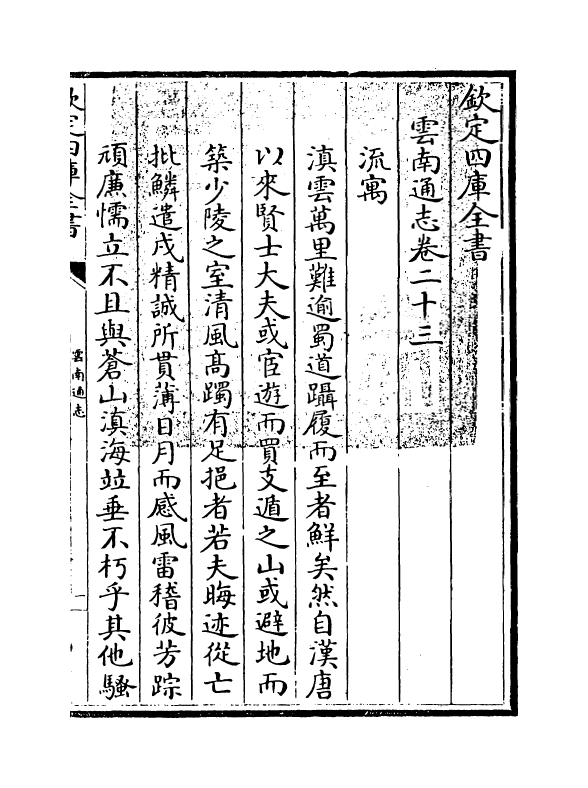 欽定四庫全書
雲南通志卷二十三
流寓
滇雲萬里難逾蜀道躡履而至者鮮矣然自漢唐
以來賢士大夫或宦遊而買支遁之山或避地而
築少陵之室清風高躅有足挹者若夫晦迹從亡
批鱗遣戍精誠所貫薄日月而感風雷稽彼芳踪
頑廉懦立不且與蒼山滇海竝垂不朽乎其他騷
欽定四庫全書
雲南通志
一